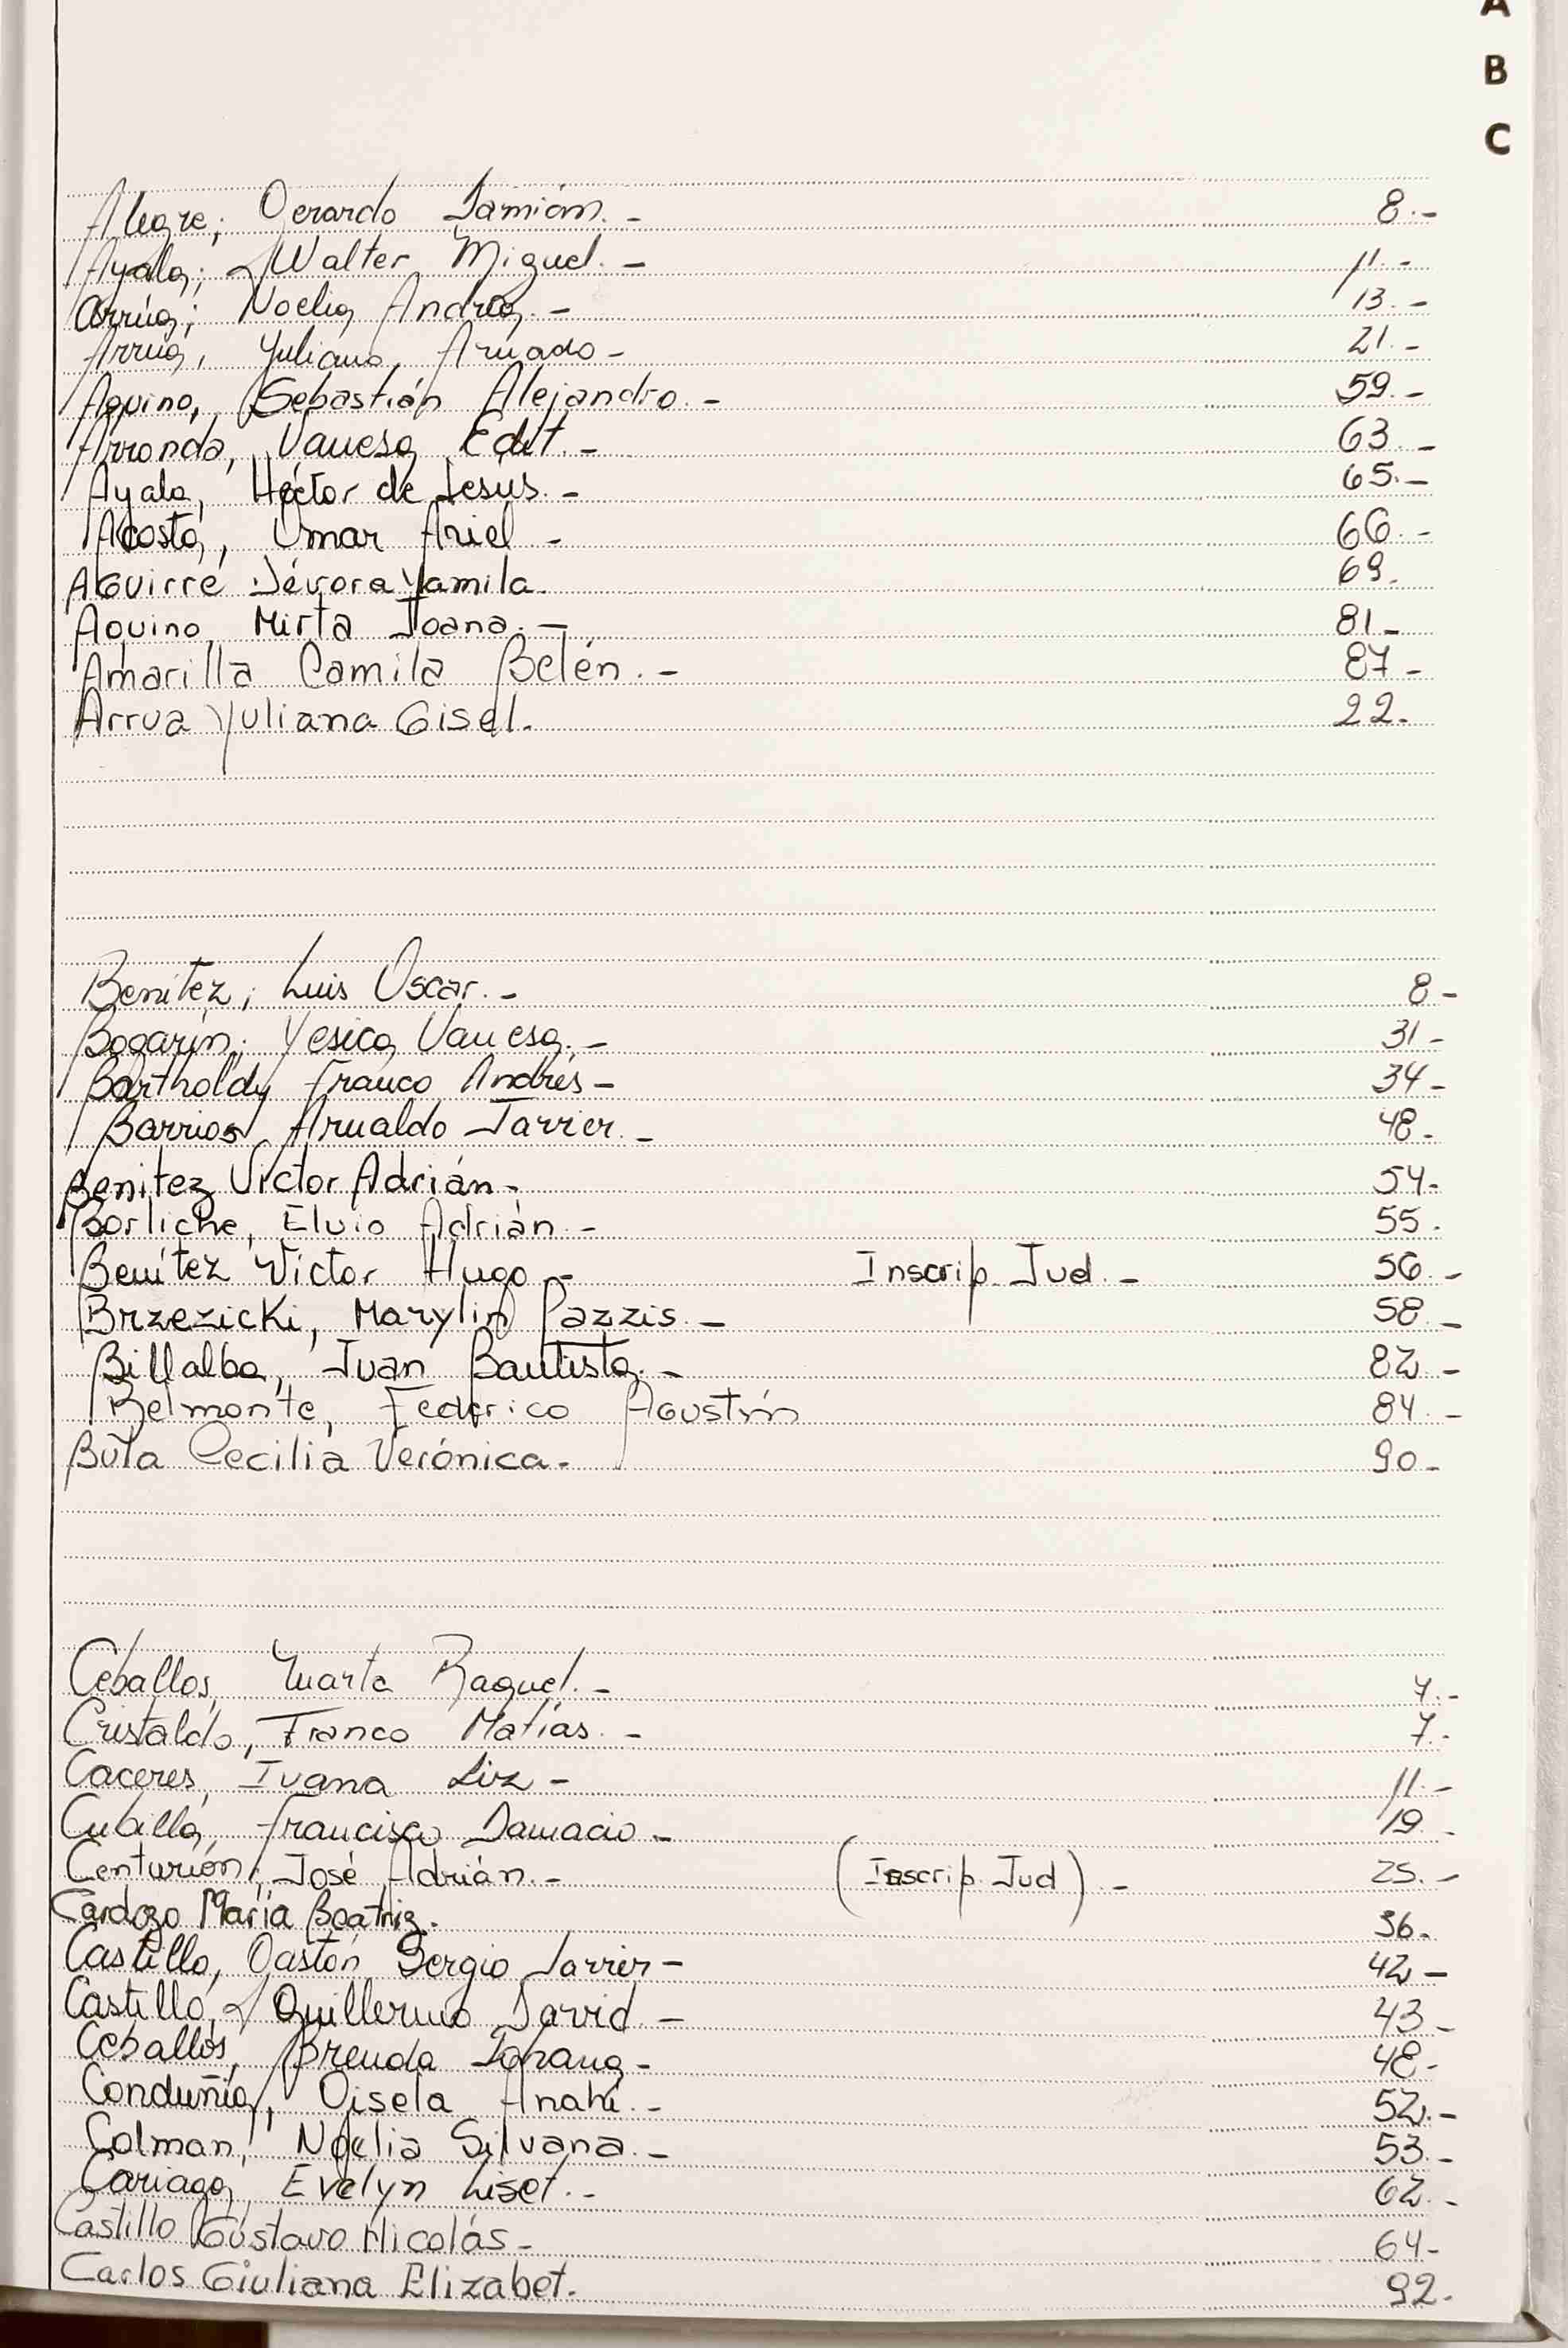 A
B
C
Alegre; Gerardo Damián.- 8.-
Ayala; Walter Miguel.- 11.-
Arrúa; Noelia Andrea.- 13.-
Arrúa, Yuliana 21.-
Aquino, Sebastián Alejandro.- 59.-
Arronda, Vanesa Edit.- 63.-
Ayala, Héctor de Jesús.- 65.-
Acosta, Omar Ariel - 66.-
Aguirre Dévora Yamila. 69.
Aquino, Mirta Joana.- 81-
Amarilla Camila Belén.- 87-
Arrua Yuliana Gisel. 22.
Benítez; Luis Oscar.- 8-
Bogarín; Yesica Vanesa.- 31-
Bartholdy Franco Andrés- 34-
Barrios, Arnaldo Javier.- 48-
Benitez Victor Adrián- 54-
Borliche, Elvio Adrián.- 55.
Benítez Victor Hugo- Inscrip. Jud.- 56.-
Brzezicki, Marylin Pazzis.- 58.-
Billalba, Juan Bautista.- 82.-
Belmonte, Federico Agustín 84.-
Buta Cecilia Verónica. 90-
Ceballos, Marta Raquel.- 7.-
Cristaldo, Franco Matías.- 7.-
Caceres, Ivana Liz- 11.-
Cubilla, Francisco Damacio- 19-
Centurión; José Adrián.- (Inscrip. Jud).- 25.-
Cardozo María Beatriz. 36.
Castillo, Gastón Sergio Javier- 42-
Castillo, Guillermo David- 43-
Ceballos, Brenda Johana- 48-
Conduñia, Gisela Anahí.- 52.-
Colman, Noelia Silvana.- 53.-
Cariaga, Evelyn Liset.- 62.-
Castillo Gustavo Nicolás- 64-
Carlos Giuliana Elizabet. 92.